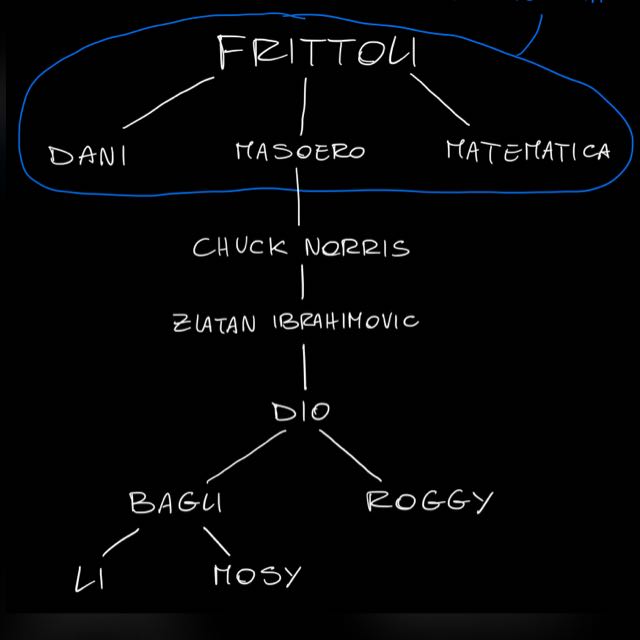 FRITTOLI
DANI MASOERO MATEMATICA
CHUCK NORRIS
ZLATAN IBRAHIMOVIC
DIO
BAGLI ROGGY
LI MOSY